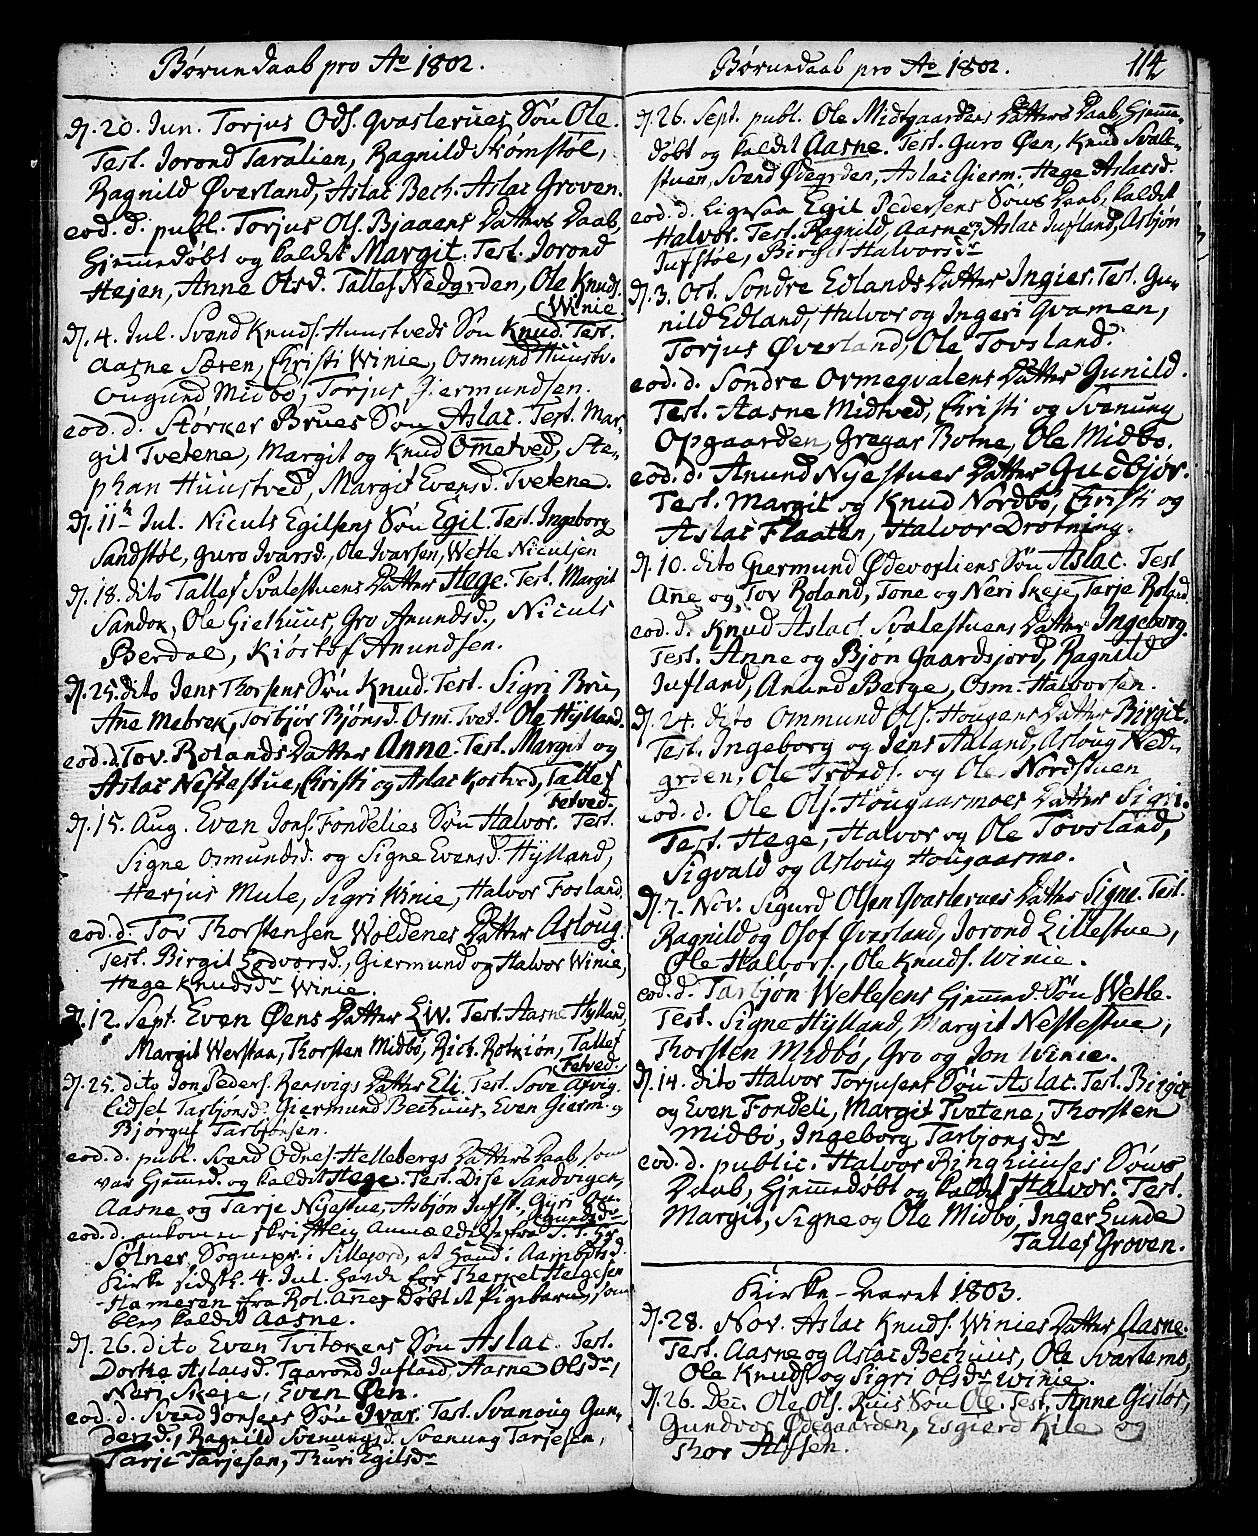 Børnedaab pro Ao 1802.
D. 20. Jun. Torjus Ods. Qvasleruės Søn Ole.
Test. Jorond Taralien, Ragnild Strømstøl,
Ragnild Øverland, Aslac Bech. Aslac Groven.
eod. d. publ. Torjus Ols. Bjaaens Datters Daab,
Hjemmedøbt og kaldet Margit. Test. Jorond
Hejen, Anne Olsd. Tallef Nedgrden, Ole Knuds.
Winie
D. 4. Jul. Svend Knuds. Huustveds Søn Knud. Test.
Aasne Særen, Christi Winie, Osmund Huustv.
Ougund Midbø, Torjus Giermundsen.
eod. d. Størker Brues Søn Aslac. Test. Mar-
git Tvetene, Margit og Knud Ommetved, Ste-
phan Huustved, Margit Evensd. Tvetene.
D. 11te Jul. Niculs Egilsens Søn Egil. Test. Ingeborg
Sandstøl, Guro Ivarsd., Ole Ivarsen, Wetle Niculsen
D. 18. dito Tallef Svalestuens Datter Hege. Test. Margit
Sandok, Ole Giethuus, Gro Amundsd., Niculs
Berdal, Kiøstof Anundsen.
D. 25. dito Jens Thorsens Søn Knud. Test. Sigri Bru,
Anne Mebrek, Torbjør Bjønsd. Osm. Tvet. Ole Hylland.
eod. d. Tov Rolands Datter Anne. Test. Margit og
Aslac Nestestue, Christi og Aslac Kostved, Tallef
Fetved.
D. 15. Aug. Even Jons. Fondelies Søn Halvor. Test.
Signe Osmundsd. og Signe Evensd. Hylland,
Herjus Mule, Sigri Winie, Halvor Fosland.
eod. d. Tov Thorstensen Woldenes Datter Asloug.
Test. Birgit Lodvorsd., Giermund og Halvor Winie,
Hege Knudsdr Winie.
D. 12. Sept. Even Øens Datter Liv. Test. Aasne Hylland,
Margit Werstaa, Thorsten Midbø, Rich. Rotkiøn, Tallef
Fetved.
D. 25. dito Jon Peders. Rensvigs Datter Eli. Test. Sove Asvig
Lidset Tarbjønsd. Giermund Bechuus, Even Gierm. og
Bjørguf Tarbjønsen.
eod. d. publ. Svend Odnes. Hellebergs Datters Daab, som
var Hjemmed. og kaldet Hege. Test. Dise Sandvigen,
Aasne og Tarje Nyestue, Asbjøn Jufst., Gyri
eod. d. ankom en skriftlig Anmældelse fra S. T. Hr
Sølner, Sogneprs. i Sillejord, at Hand i Aamotsd.
Kirke sidstl. 4. Jul. havde for Therkel Helgesen
Hameren fra Rol. Annex Døbt et Pigebarn, som
blev kaldet Aasne.
D. 26. dito Even Tvitokens Søn Aslac. Test.
Dorthe Aslacsd. Taarond Jufland, Aasne Olsdr,
Neri Skeje, Even Øen.
eod. d. Svend Jonsens Søn Ivar. Test. Svanoug Gun-
dersd., Ragnild Svenungsd. Svenung Tarjesen,
Tarje Tarjesen, Thuri Egilsdr
Børnedaab pro Ao 1802.
114
D. 26. Sept. publ. Ole Midtgaardens Datters Daab, Hjemme-
døbt og kaldet Aasne. Test. Guro Øen, Knud Svale-
stuen, Svend Ødegrden, Aslac Gierm. Hege Aslacsd.
eod. d. Ligesaa Egil Pedersens Søns Daab, kaldet
Halvor. Test. Ragnild, Aasne, Aslac Jufland, Asbjøn
Jufstøl, Birgit Halvorsdr
D. 3. Oct. Sondre Edlands Datter Ingier. Test. Gu-
nild Edland, Halvor og Ingeri Qvamen,
Torjus Øverland, Ole Tovsland.
eod. d. Sondre Ormeqvalens Datter Gunild.
Test. Aasne Midtved, Christi og Svenung
Opgaarden, Gregar Botne, Ole Midbø.
eod. d. Anund Nyestues Datter Gudbjør.
Test. Margit og Knud Nordbø, Christi og
Aslac Flaaten, Halvor Drotning.
D. 10. dito Giermund Ødevosliens Søn Aslac. Test
Ane og Tov Roland, Tone og Neri Skeje, Tarje Roland
eod. d. Knud Aslacs. Svalestuens Datter Ingeborg.
Test. Anne og Bjøn Gaardsjord, Ragnild
Jufland, Anund Berge, Osm. Halvorsen.
D. 24. dito Ommund Ols. Hougens Datter Birgit.
Test. Ingeborg og Jens Aaland, Asloug Ned-
grden, Ole og Ole Nordstuen
eod. d. Ole Ols. Hougaasmoes Datter Sigri.
Test. Hege, Halvor og Ole Tovsland,
Sigvald og Asloug Hougaasmo.
D. 7. Nov. Sigurd Olsen Qvaslerues Datter Signe. Test.
Ragnild og Olof Øverland, Jorond Lillestue,
Ole Halvors., Ole Knuds. Winie.
eod. d. Tarbjøn Wetlesens Hjemmed. Søn Wetle.
Test. Signe Hylland, Margit Nestestue,
Thorsten Midbø, Gro og Jon Winie.
D. 14. dito Halvor Torjusens Søn Aslac. Test. Birgit
og Even Fondeli, Margit Tvetene, Thorsten
Midbø, Ingeborg Tarbjønsdr
eod. d. public. Halvor Ringhuuses Søns
Daab, Hjemmedøbt og kaldet Halvor. Test.
Margit, Signe og Ole Midbø, Inger Lunde
Tallef Groven.
Kirke-Aaret 1803.
D. 28. Nov. Aslac Knuds. Winies Datter Aasne.
Test. Aasne og Aslac Bechuus, Ole Svartemo,
Ole Knuds. og Sigri Olsdr Winie.
D. 26. Dec. Ole Ols. Ruis Søn Ole. Test. Anne Gislos,
Gundvor Ødegaarden, Esgierd Kile og
Thor Alfsen.